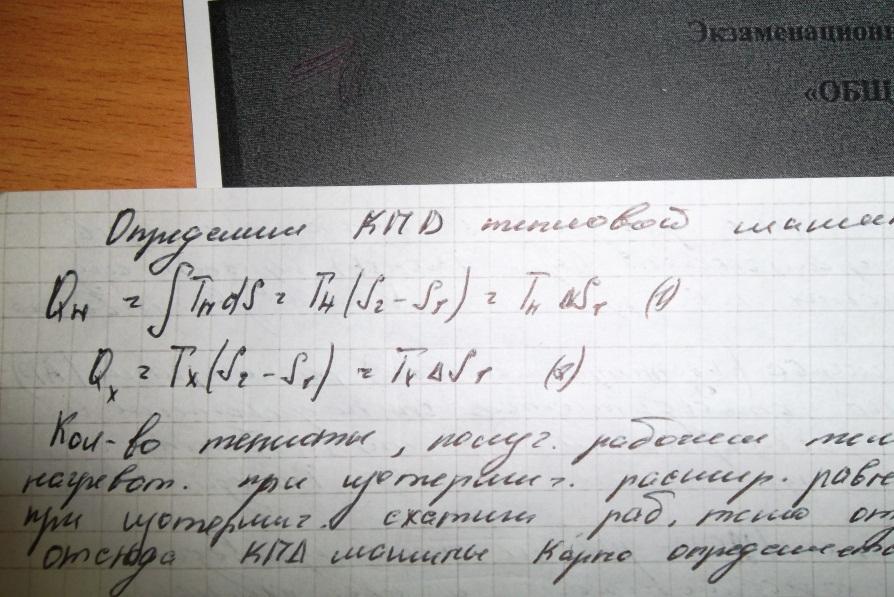 Экзаменационн
«ОБЩ
Определим КПД тепловой машин
Qн = ∫Tн dS = Tн (S₂ - S₁) = Tн ΔS₁ (1)
Qх = Tх (S₂ - S₁) = Tх ΔS₁ (2)
Кол-во теплоты, получ. рабочим тел
нагреват. при изотермич. расшир. равно
при изотермич. сжатии раб. тело от
отсюда КПД машины Карно определяетс